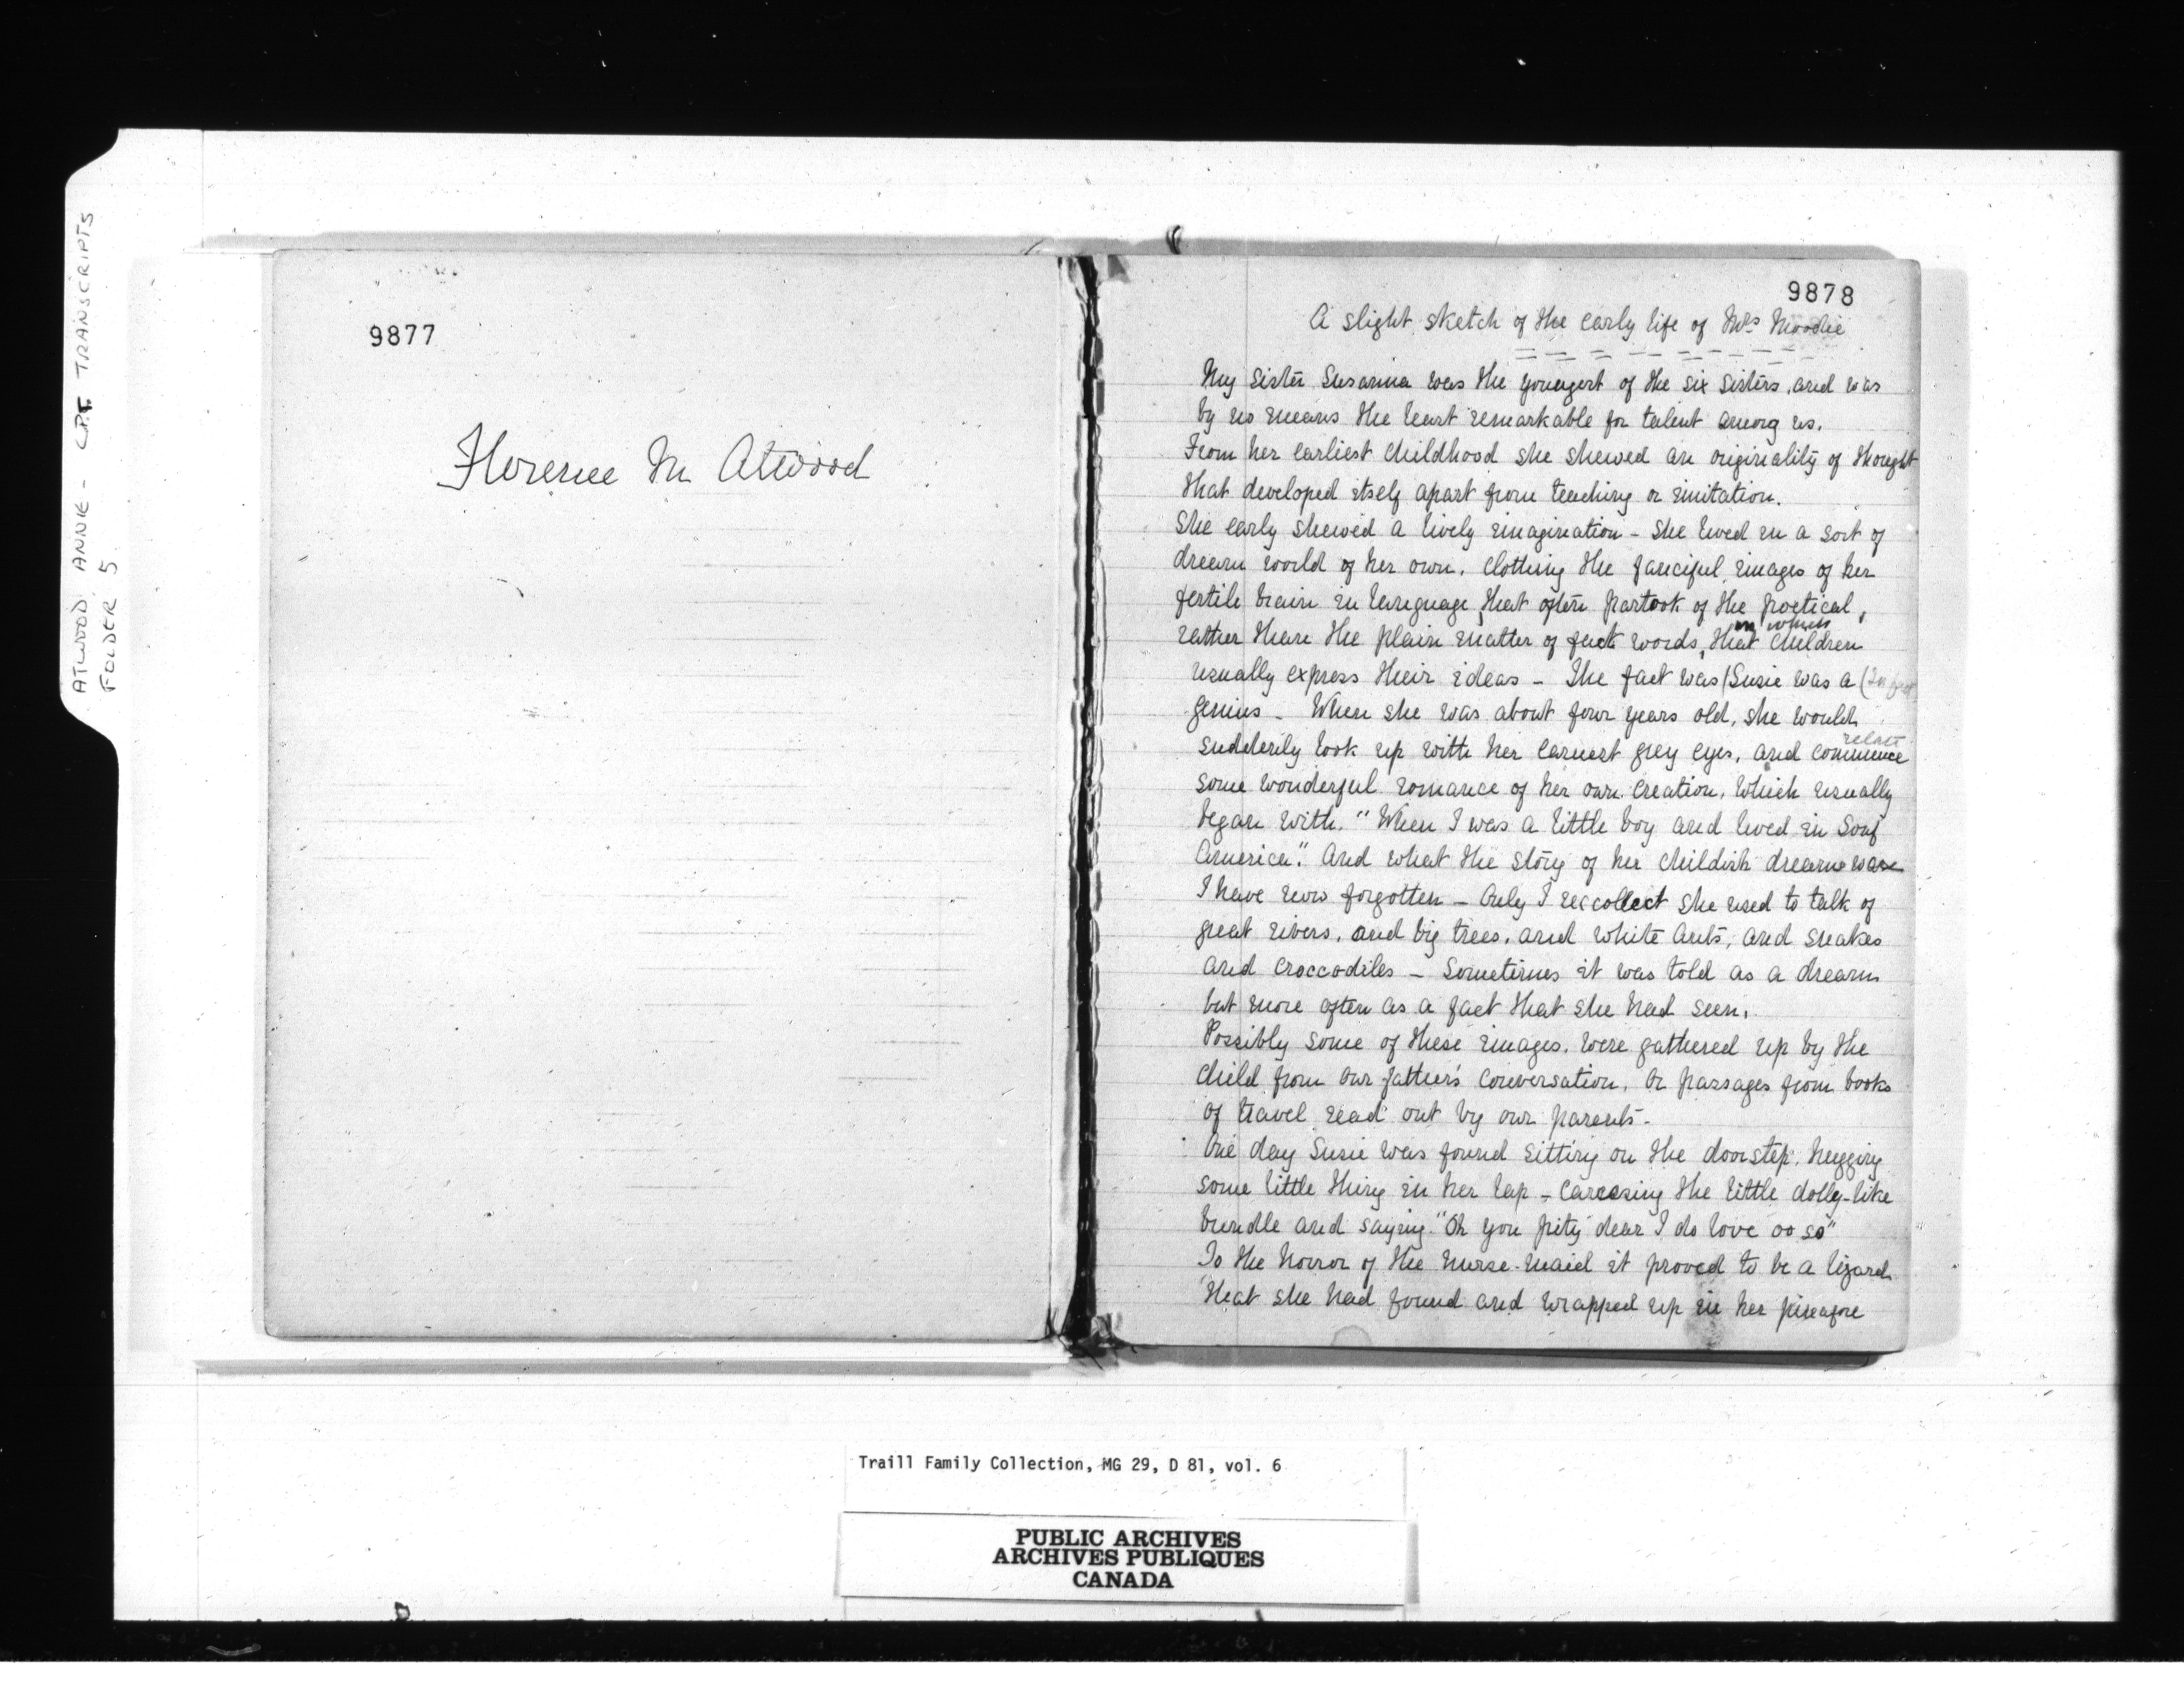 ATWOOD, ANNIE - C.P.T. TRANSCRIPTS
FOLDER 5
9877
Florence M Atwood
9878
A slight sketch of the early life of Mrs Moodie
My sister Susanna was the youngest of the six sisters, and was
by no means the least remarkable for talent among us.
From her earliest childhood she shewed an originality of thought
that developed itself apart from teaching or imitation.
She early shewed a lively imagination - She lived in a sort of
dream world of her own, clothing the fanciful images of her
fertile brain in language that often partook of the poetical,
in which
rather than the plain matter of fact words, that children
usually express their ideas - The fact was (Susie was a
genius - When she was about four years old, she would
relate
suddenly look up with her earnest grey eyes, and commence
some wonderful romance of her own creation, which usually
began with. "When I was a little boy and lived in Souf
America." And what the story of her childish dream was
I have now forgotten - Only I reccollect she used to talk of
great rivers, and big trees, and white ants, and snakes
and croccodiles - Sometimes it was told as a dream
but more often as a fact that she had seen.
Possibly some of these images, were gathered up by the
child from our father's conversation, or passages from books
of travel read out by our parents -
One day Susie was found sitting on the doorstep, hugging
some little thing in her lap - caressing the little dolly-like
bundle and saying "Oh you pity dear I do love oo so"
To the horror of the nurse-maid it proved to be a lizard
that she had found and wrapped up in her pinafore
Traill Family Collection, MG 29, D 81, vol. 6
PUBLIC ARCHIVES
ARCHIVES PUBLIQUES
CANADA